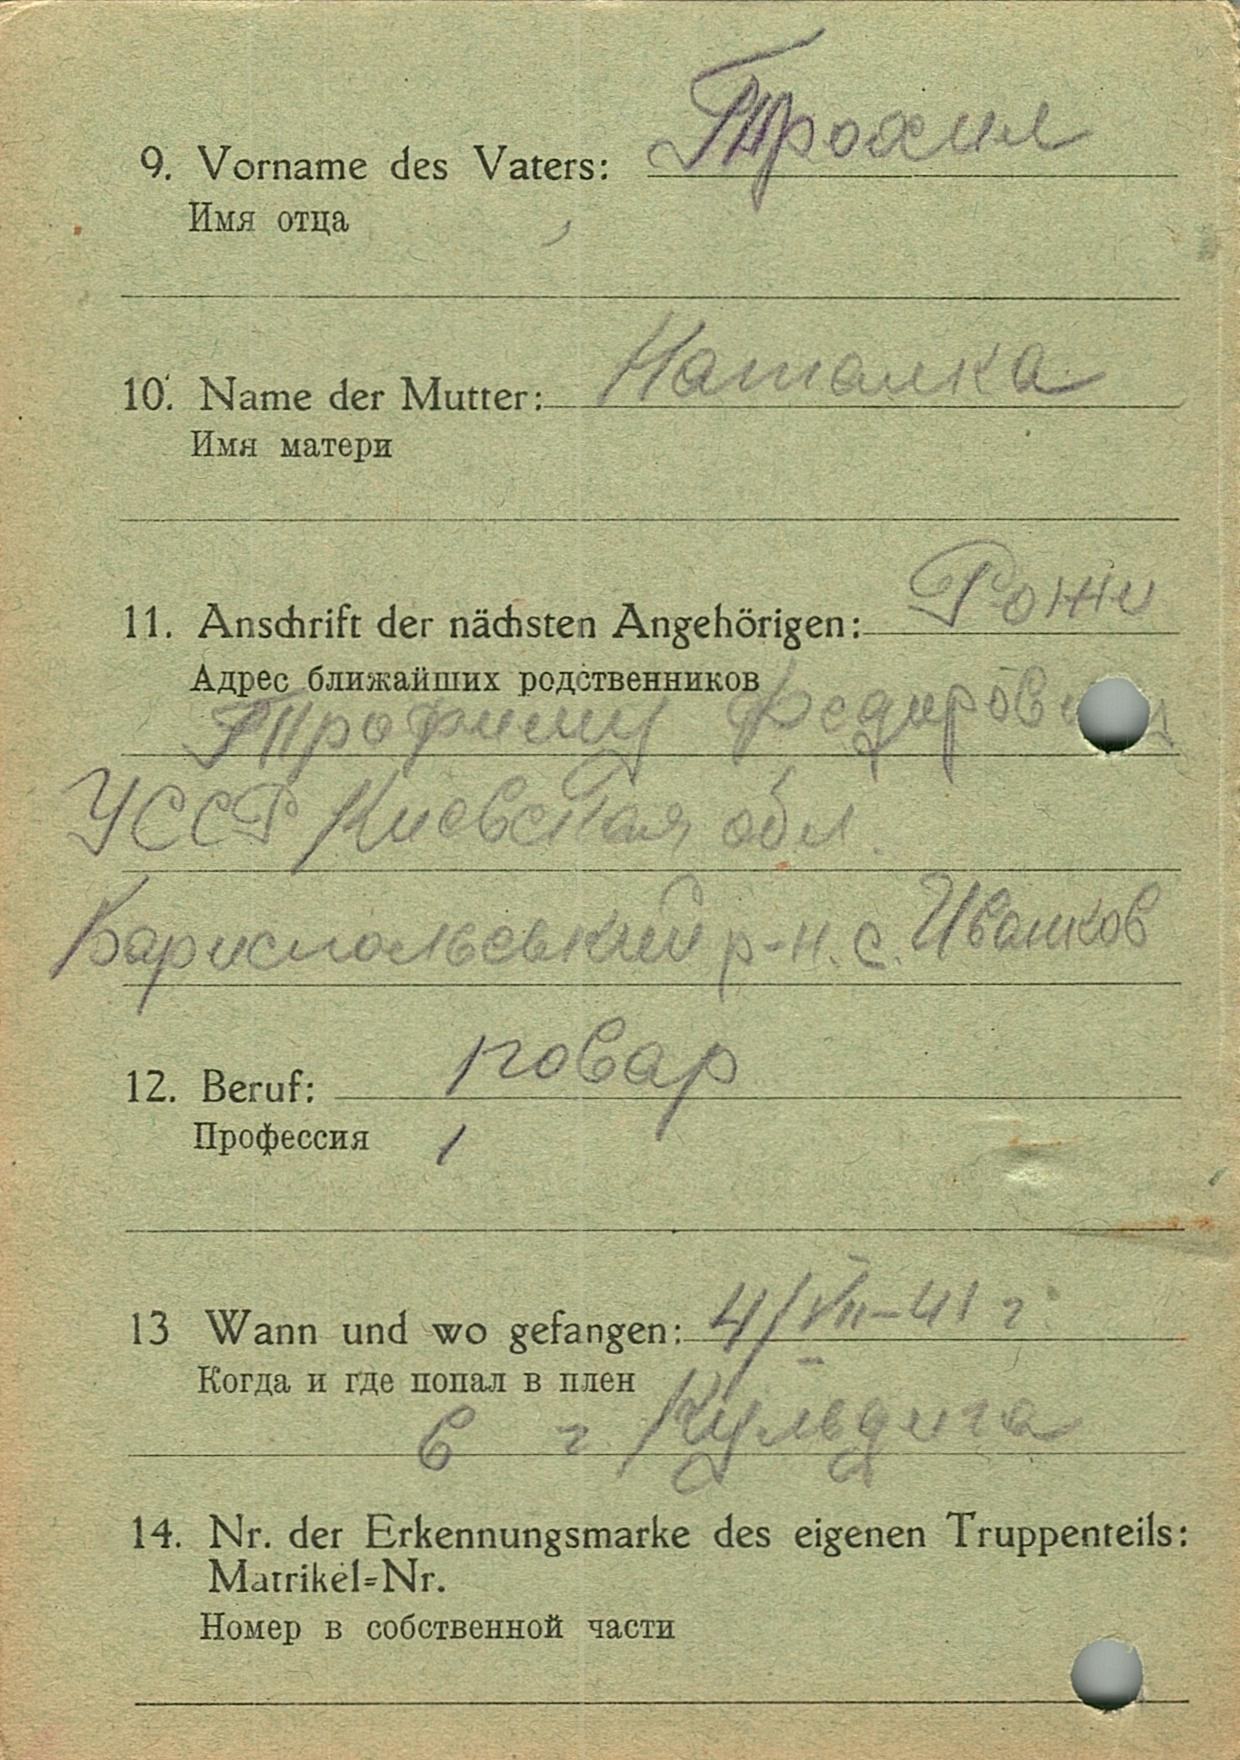 9. Vorname des Vaters: Трохим
Имя отца
10. Name der Mutter: Наталка
Имя матери
11. Anschrift der nächsten Angehörigen:
Адрес ближайших родственников
Трофиму
УССР Киевская обл.
Бариспольський р-н. с. Иванков
12. Beruf: повар
Профессия
13 Wann und wo gefangen: 4/VII-41 г
Когда и где попал в плен
в г. Кульдига
14. Nr. der Erkennungsmarke des eigenen Truppenteils:
Matrikel=Nr.
Номер в собственной части